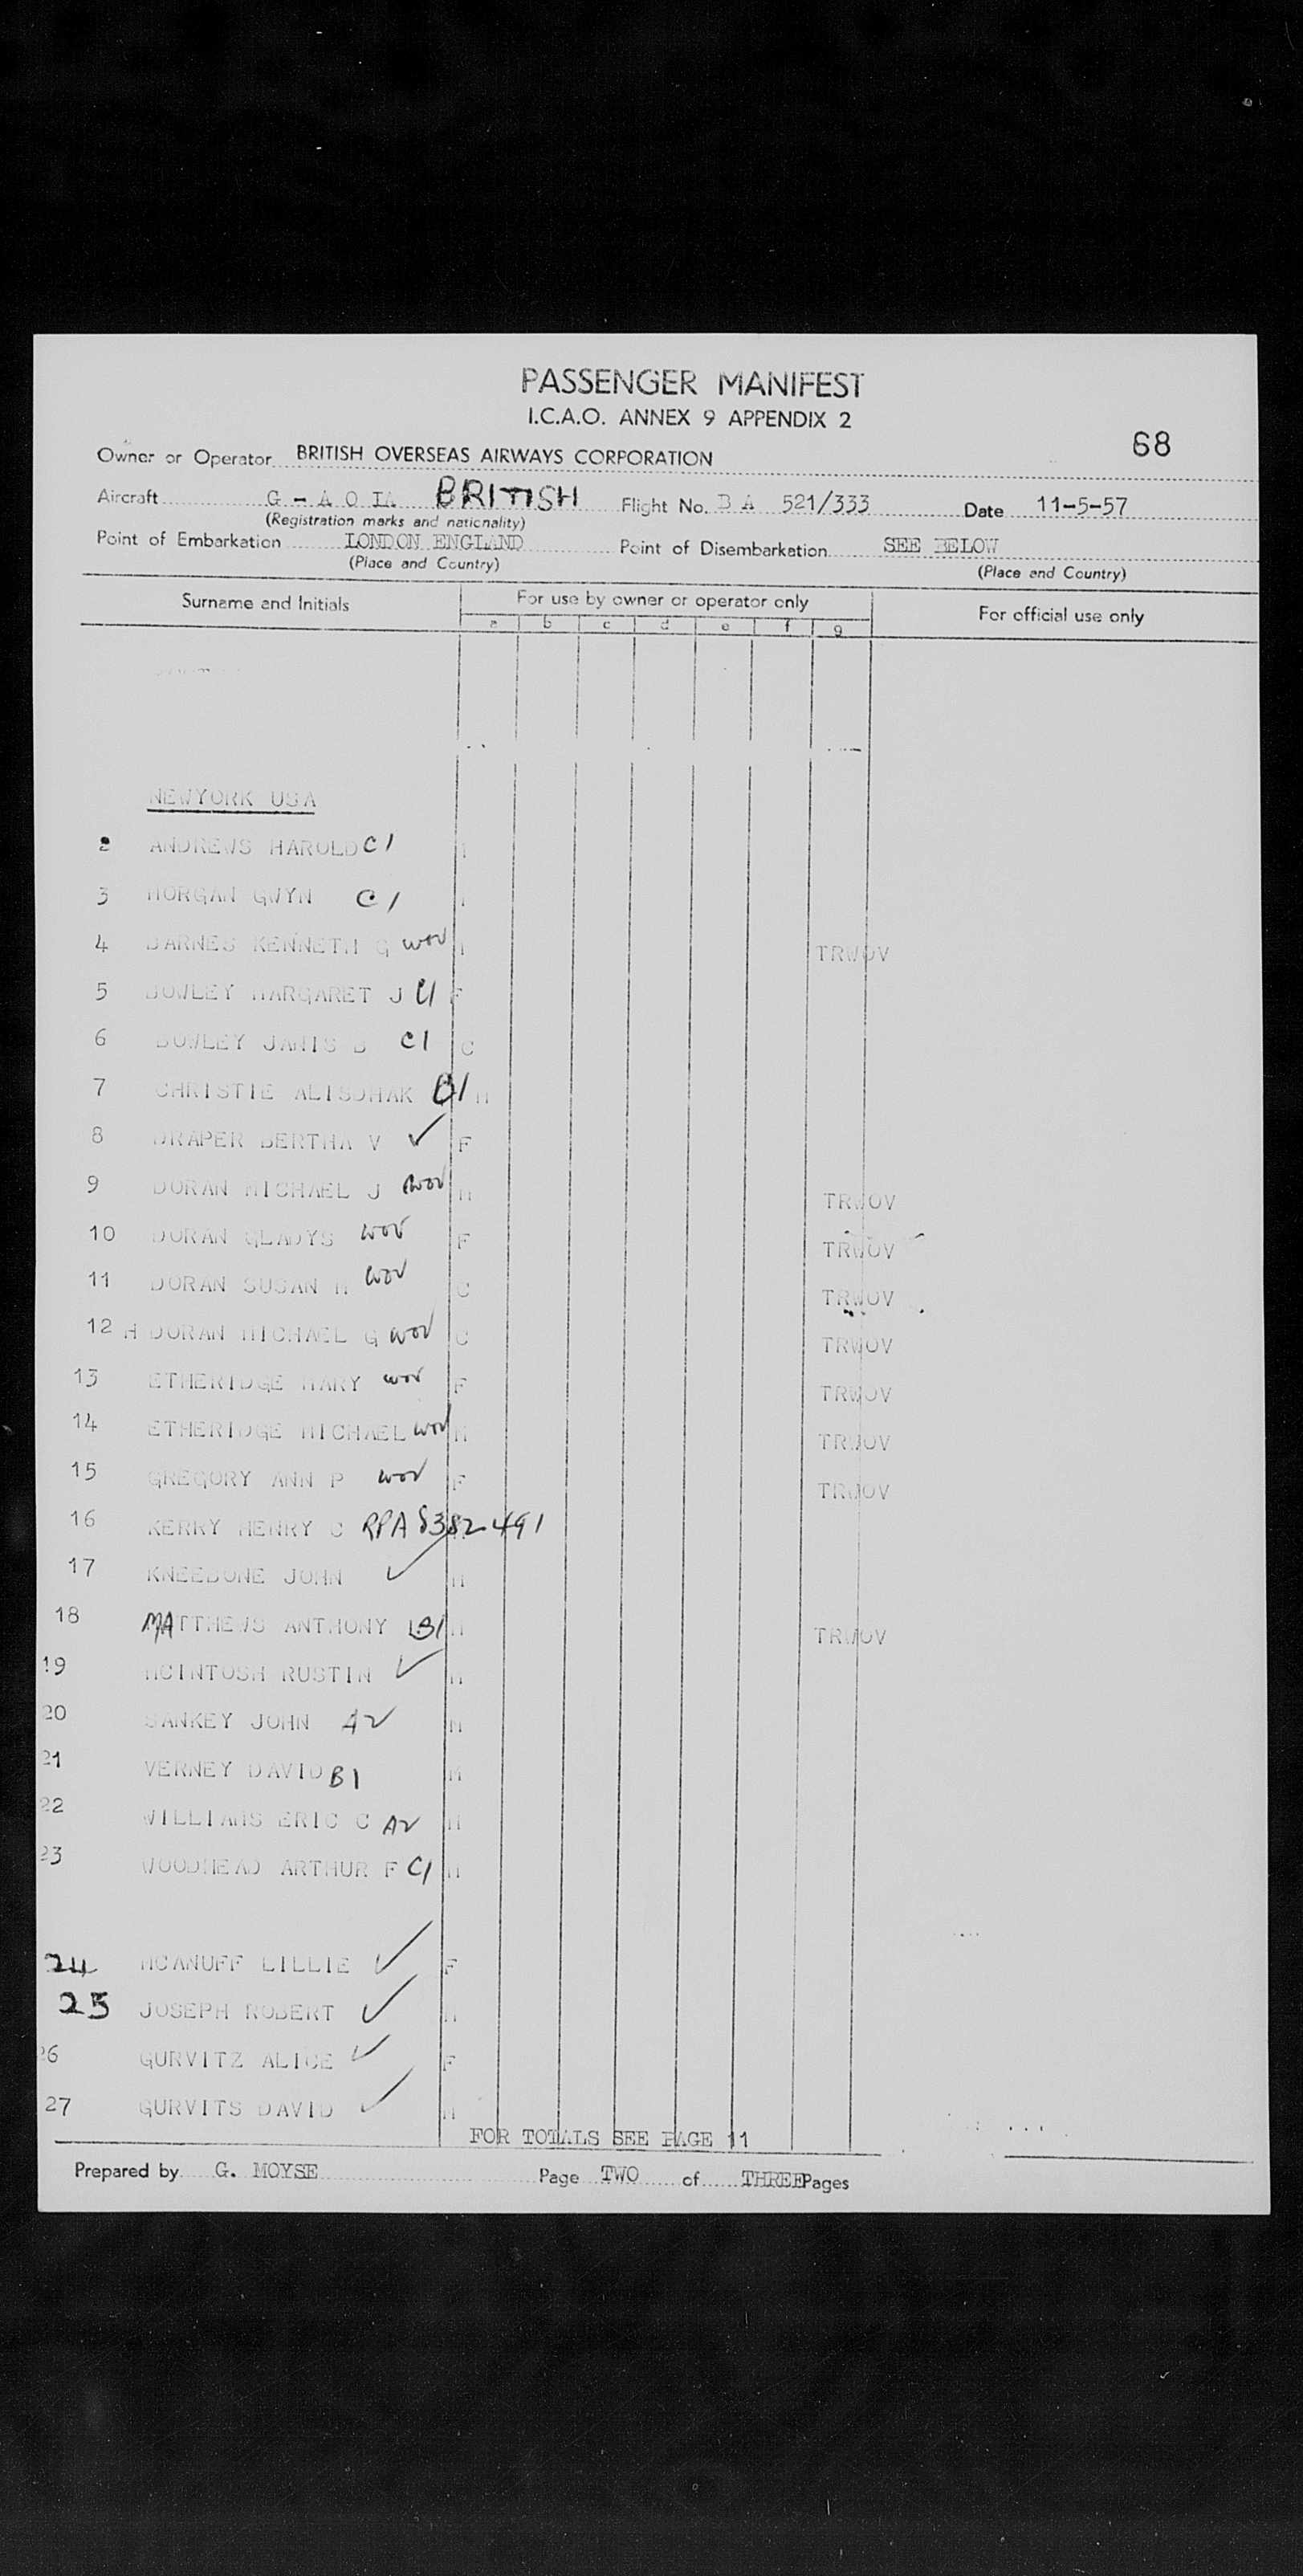 PASSENGER MANIFEST
I.C.A.O. ANNEX 9 APPENDIX 2
68
Owner or Operator BRITISH OVERSEAS AIRWAYS CORPORATION
Aircraft G - A O IA BRITISH Flight No. B A 521/333 Date 11-5-57
(Registration marks and nationality)
Point of Embarkation LONDON ENGLAND Point of Disembarkation SEE BELOW
(Place and Country) (Place and Country)
Surname and Initials For use by owner or operator only For official use only
a b c d e f g
NEWYORK USA
2 ANDREWS HAROLD C1
3 MORGAN GWYN C1
4 BARNES KENNETH G wov TRWOV
5 BOWLEY MARGARET J C1 F
6 BOWLEY JANIS B C1 C
7 CHRISTIE B1 M
8 DRAPER BERTHA V ✓ F
9 DORAN MICHAEL J wov M TRWOV
10 DORAN GLADYS wov F TRWOV
11 DORAN SUSAN M wov C TRWOV
12 H DORAN MICHAEL G wov C TRWOV
13 ETHERIDGE MARY wov F TRWOV
14 ETHERIDGE MICHAEL wov M TRWOV
15 GREGORY ANN P wov F TRWOV
16 KERRY HENRY C RPA 8382491
17 KNEEBONE JOHN ✓ M
18 MATTHEWS ANTHONY B1 M TRWOV
19 MCINTOSH RUSTIN ✓ M
20 SANKEY JOHN A2 M
21 VERNEY DAVID B1 M
22 WILLIAMS ERIC C A2 M
23 WOODHEAD ARTHUR F C1 M
24 MCANUFF LILLIE ✓ F
25 JOSEPH ROBERT ✓ M
26 GURVITZ ALICE ✓ F
27 GURVITS DAVID ✓ M
FOR TOTALS SEE PAGE 11
Prepared by G. MOYSE Page TWO of THREE Pages